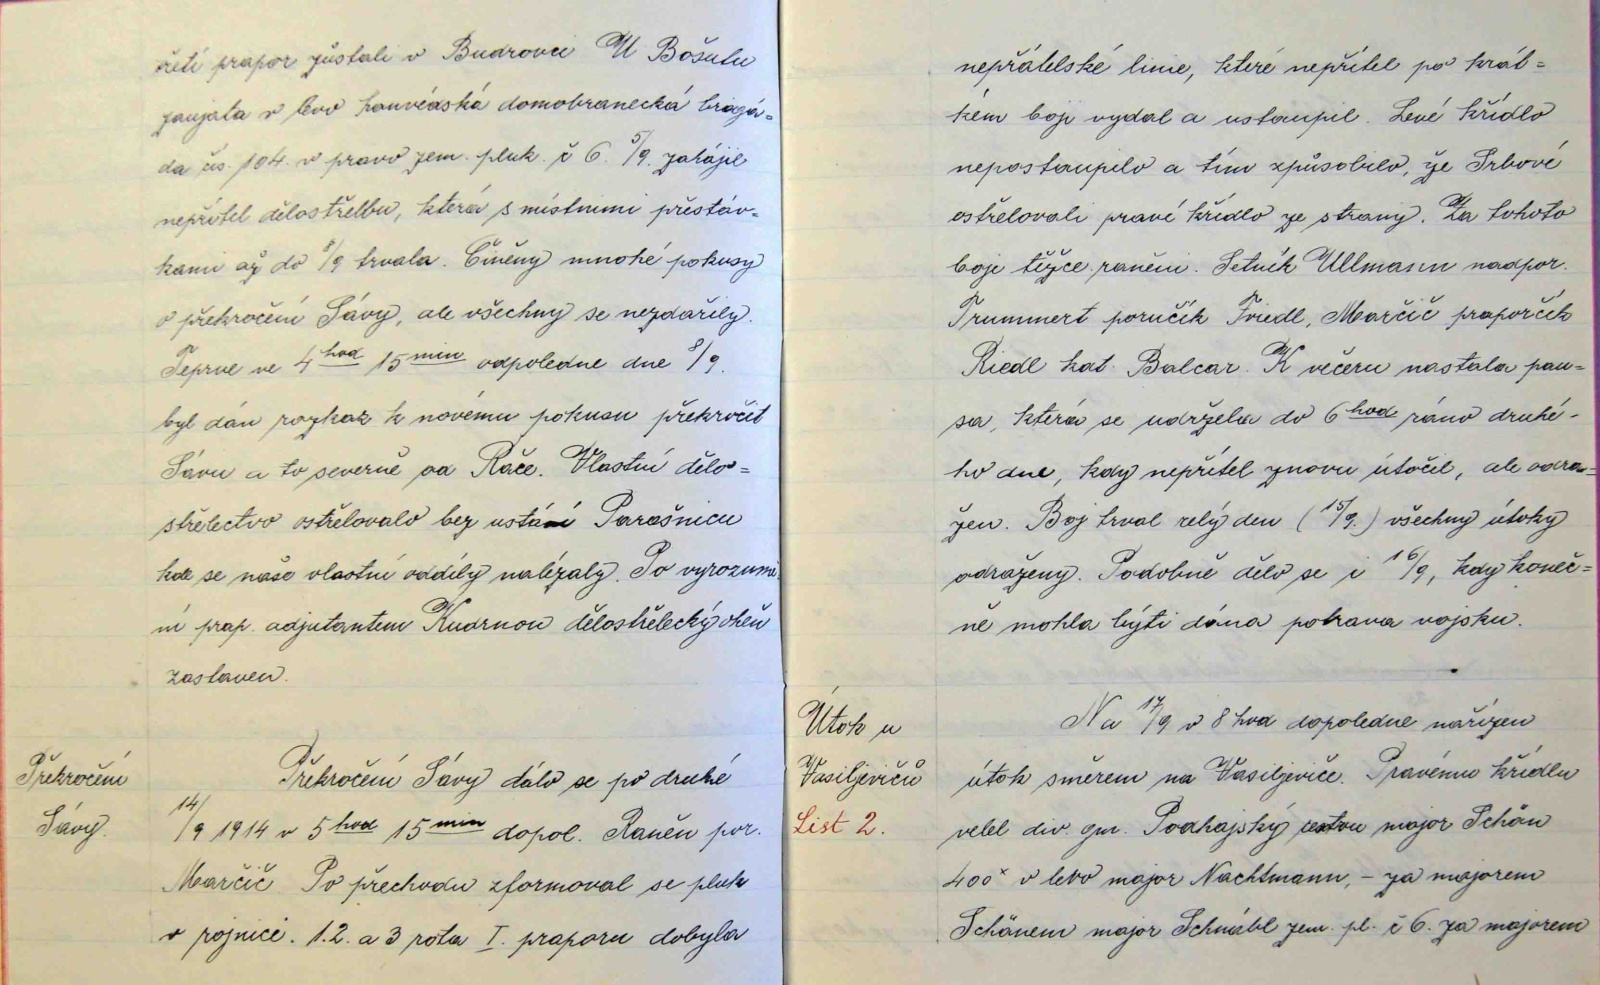 třetí prapor zůstali v Budrovci U Bošutu
zaujata v levo honvédská domobranecká brigá=
da čís. 104. v pravo zem. pluk. č 6. 5/9. zahájil
nepřítel dělostřelbu, která s místními přestáv=
kami až do 8/9 trvala. Činěny mnohé pokusy
o překročení Sávy, ale všechny se nezdařily.
Teprve ve 4 hod 15 min odpoledne dne 8/9.
byl dán rozkaz k novému pokusu překročit
Sávu a to severně od Rače. Vlastní dělo=
střelectvo ostřelovalo bez ustání Parašnicu
kde se naše vlastní oddíly nalézaly. Po vyrozumě
ní prap. adjutantem Kudrnou dělostřelecký oheň
zastaven.
Překročení
Sávy.
Překročení Sávy dálo se po druhé
14/9 1914 v 5 hod 15 min dopol. Raněn por.
Marčič Po přechodu zformoval se pluk
v rojnice. 1. 2. a 3 rota I. praporu dobyla
nepřátelské linie, které nepřítel po krát=
kém boji vydal a ustoupil. Levé křídlo
nepostoupilo a tím způsobilo, že Srbové
ostřelovali pravé křídlo ze strany. Za tohoto
boje těžce raněni. Setník Ullmann nadpor.
Trummert poručík Friedl, Marčič praporčík
Riedl kat. Balcar. K večeru nastala pau=
sa, která se udržela do 6 hod ráno druhé-
ho dne, kdy nepřítel znovu útočil, ale odra=
žen. Boj trval celý den (15/9.) všechny útoky
odraženy. Podobně dělo se i 16/9, kdy koneč=
ně mohla býti dána potrava vojsku.
Útok u
Vasiljevičů
List 2.
Na 17/9 v 8 hod dopoledne nařízen
útok směrem na Vasiljeviče. Pravému křídlu
velel div. gm. Podhajský major Schön
400ˣ v levo major Nachtmann, – za majorem
Schönem major Schnábl zem. pl. č 6. za majorem